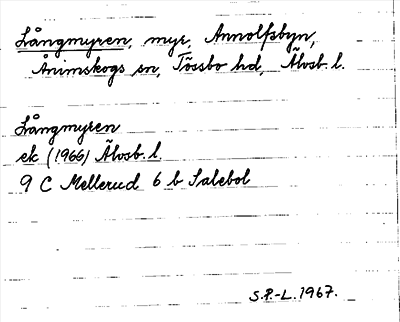 Långmyren, myr, Annolfsbyn,
Ånimskogs sn, Tössbo hd, Älvsb. l.
Långmyren
ek (1966) Älvsb. l.
9 C Mellerud 6 b Salebol
S.P.-L. 1967.